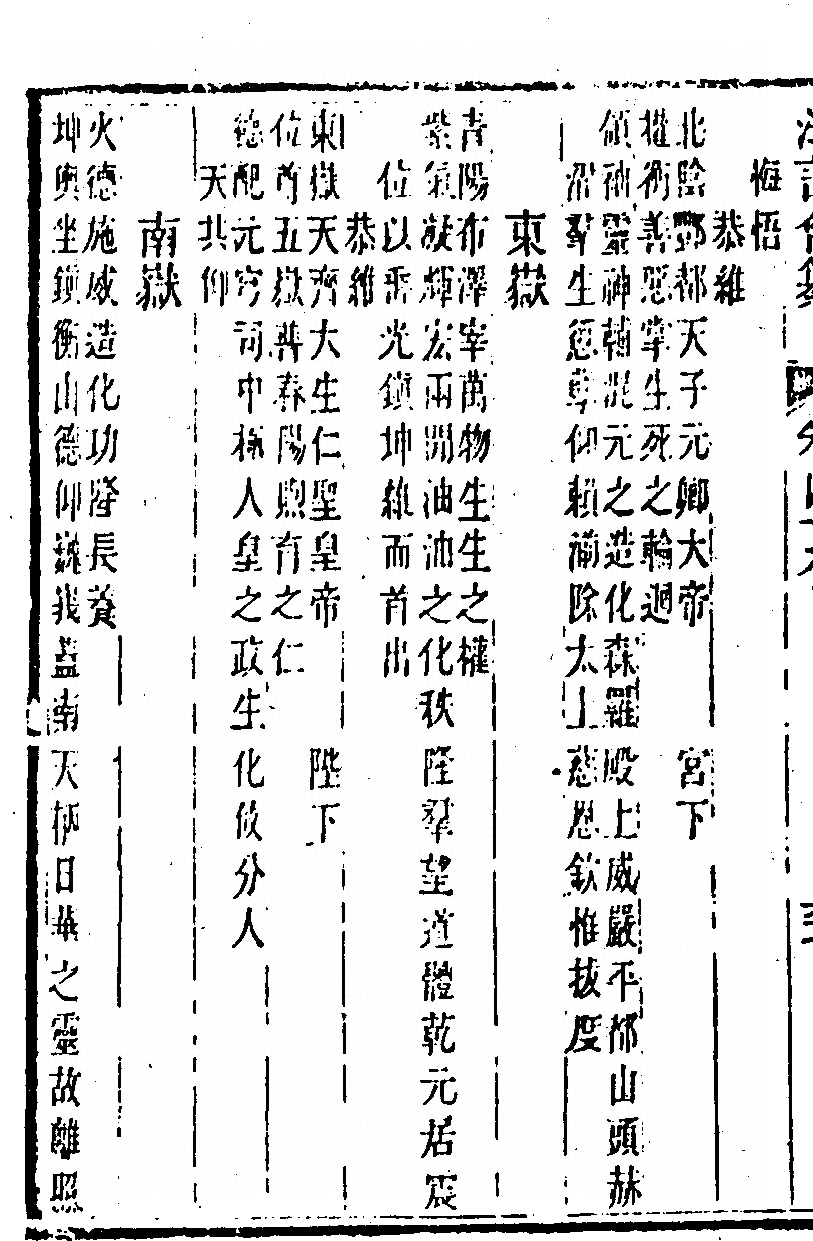 悔悟
恭維
北陰酆都天子元卿大帝　宮下
權衡善惡掌生死之輪迴
領袖靈神輔混元之造化森羅殿上威嚴平都山頭赫
羣生愆辜仰賴蠲除太上慈恩欽惟拔度
東嶽
青陽布澤宰萬物生生之權
紫氣凝輝宏兩間油油之化秩隆羣望道體乾元居震
位以垂光鎮坤維而首出
恭維
東嶽天齊大生仁聖皇帝　陛下
位尊五嶽普春陽煦育之仁
德配元穹司中極人皇之政生化攸分人
天共仰
南嶽
火德施威造化功隆長養
坤輿坐鎮衡山德仰巍峩蓋南天柄日華之靈故離照